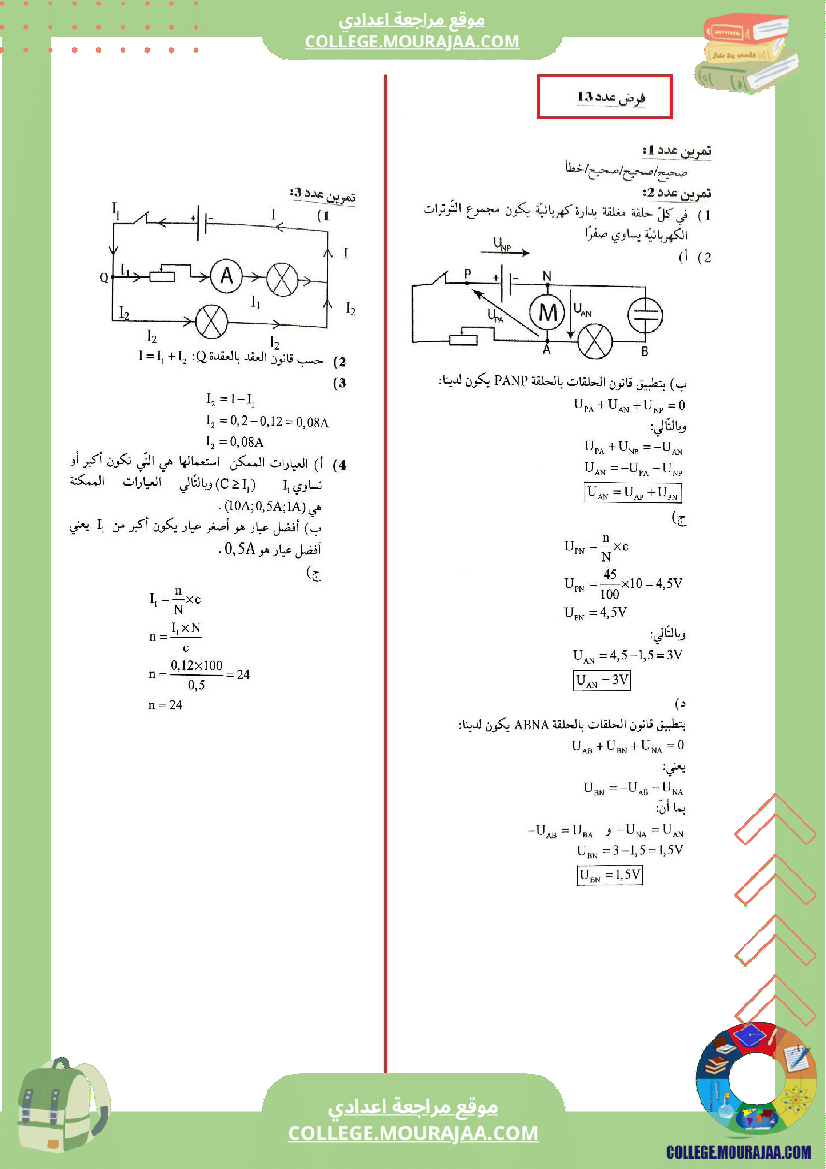 موقع مراجعة اعدادي
COLLEGE.MOURAJAA.COM
فرض عدد 13
تمرين عدد 1:
صحيح/صحيح/صحيح/خطأ
تمرين عدد 2:
1) في كلّ حلقة مغلقة بدارة كهربائيّة يكون مجموع التّوترات
الكهربائيّة يساوي صفرًا
2) أ)
U_NP
P + - N
U_PA M U_AN
A B
ب) بتطبيق قانون الحلقات بالحلقة PANP يكون لدينا:
U_PA + U_AN + U_NP = 0
وبالتّالي:
U_PA + U_NP = -U_AN
U_AN = -U_PA - U_NP
U_AN = U_AP + U_PN
ج)
U_PN = n/N × c
U_PN = 45/100 × 10 = 4,5V
U_PN = 4,5V
وبالتّالي:
U_AN = 4,5 - 1,5 = 3V
U_AN = 3V
د)
بتطبيق قانون الحلقات بالحلقة ABNA يكون لدينا:
U_AB + U_BN + U_NA = 0
يعني:
U_BN = -U_AB - U_NA
بما أنّ:
-U_AB = U_BA و -U_NA = U_AN
U_BN = 3 - 1,5 = 1,5V
U_BN = 1,5V
تمرين عدد 3:
1)
I_1 + - I
I
Q I_1 A I_1
I_2 I_2
I_2 I_2
2) حسب قانون العقد بالعقدة Q: I = I_1 + I_2
3)
I_2 = I - I_1
I_2 = 0,2 - 0,12 = 0,08A
I_2 = 0,08A
4) أ) العيارات الممكن استعمالها هي التّي تكون أكبر أو
تساوي I_1 (C ≥ I_1) وبالتّالي العيارات الممكنة
هي (10A;0,5A;1A).
ب) أفضل عيار هو أصغر عيار يكون أكبر من I_1 يعني
أفضل عيار هو 0,5A.
ج)
I_1 = n/N × c
n = I_1 × N / c
n = 0,12×100 / 0,5 = 24
n = 24
موقع مراجعة اعدادي
COLLEGE.MOURAJAA.COM
COLLEGE.MOURAJAA.COM